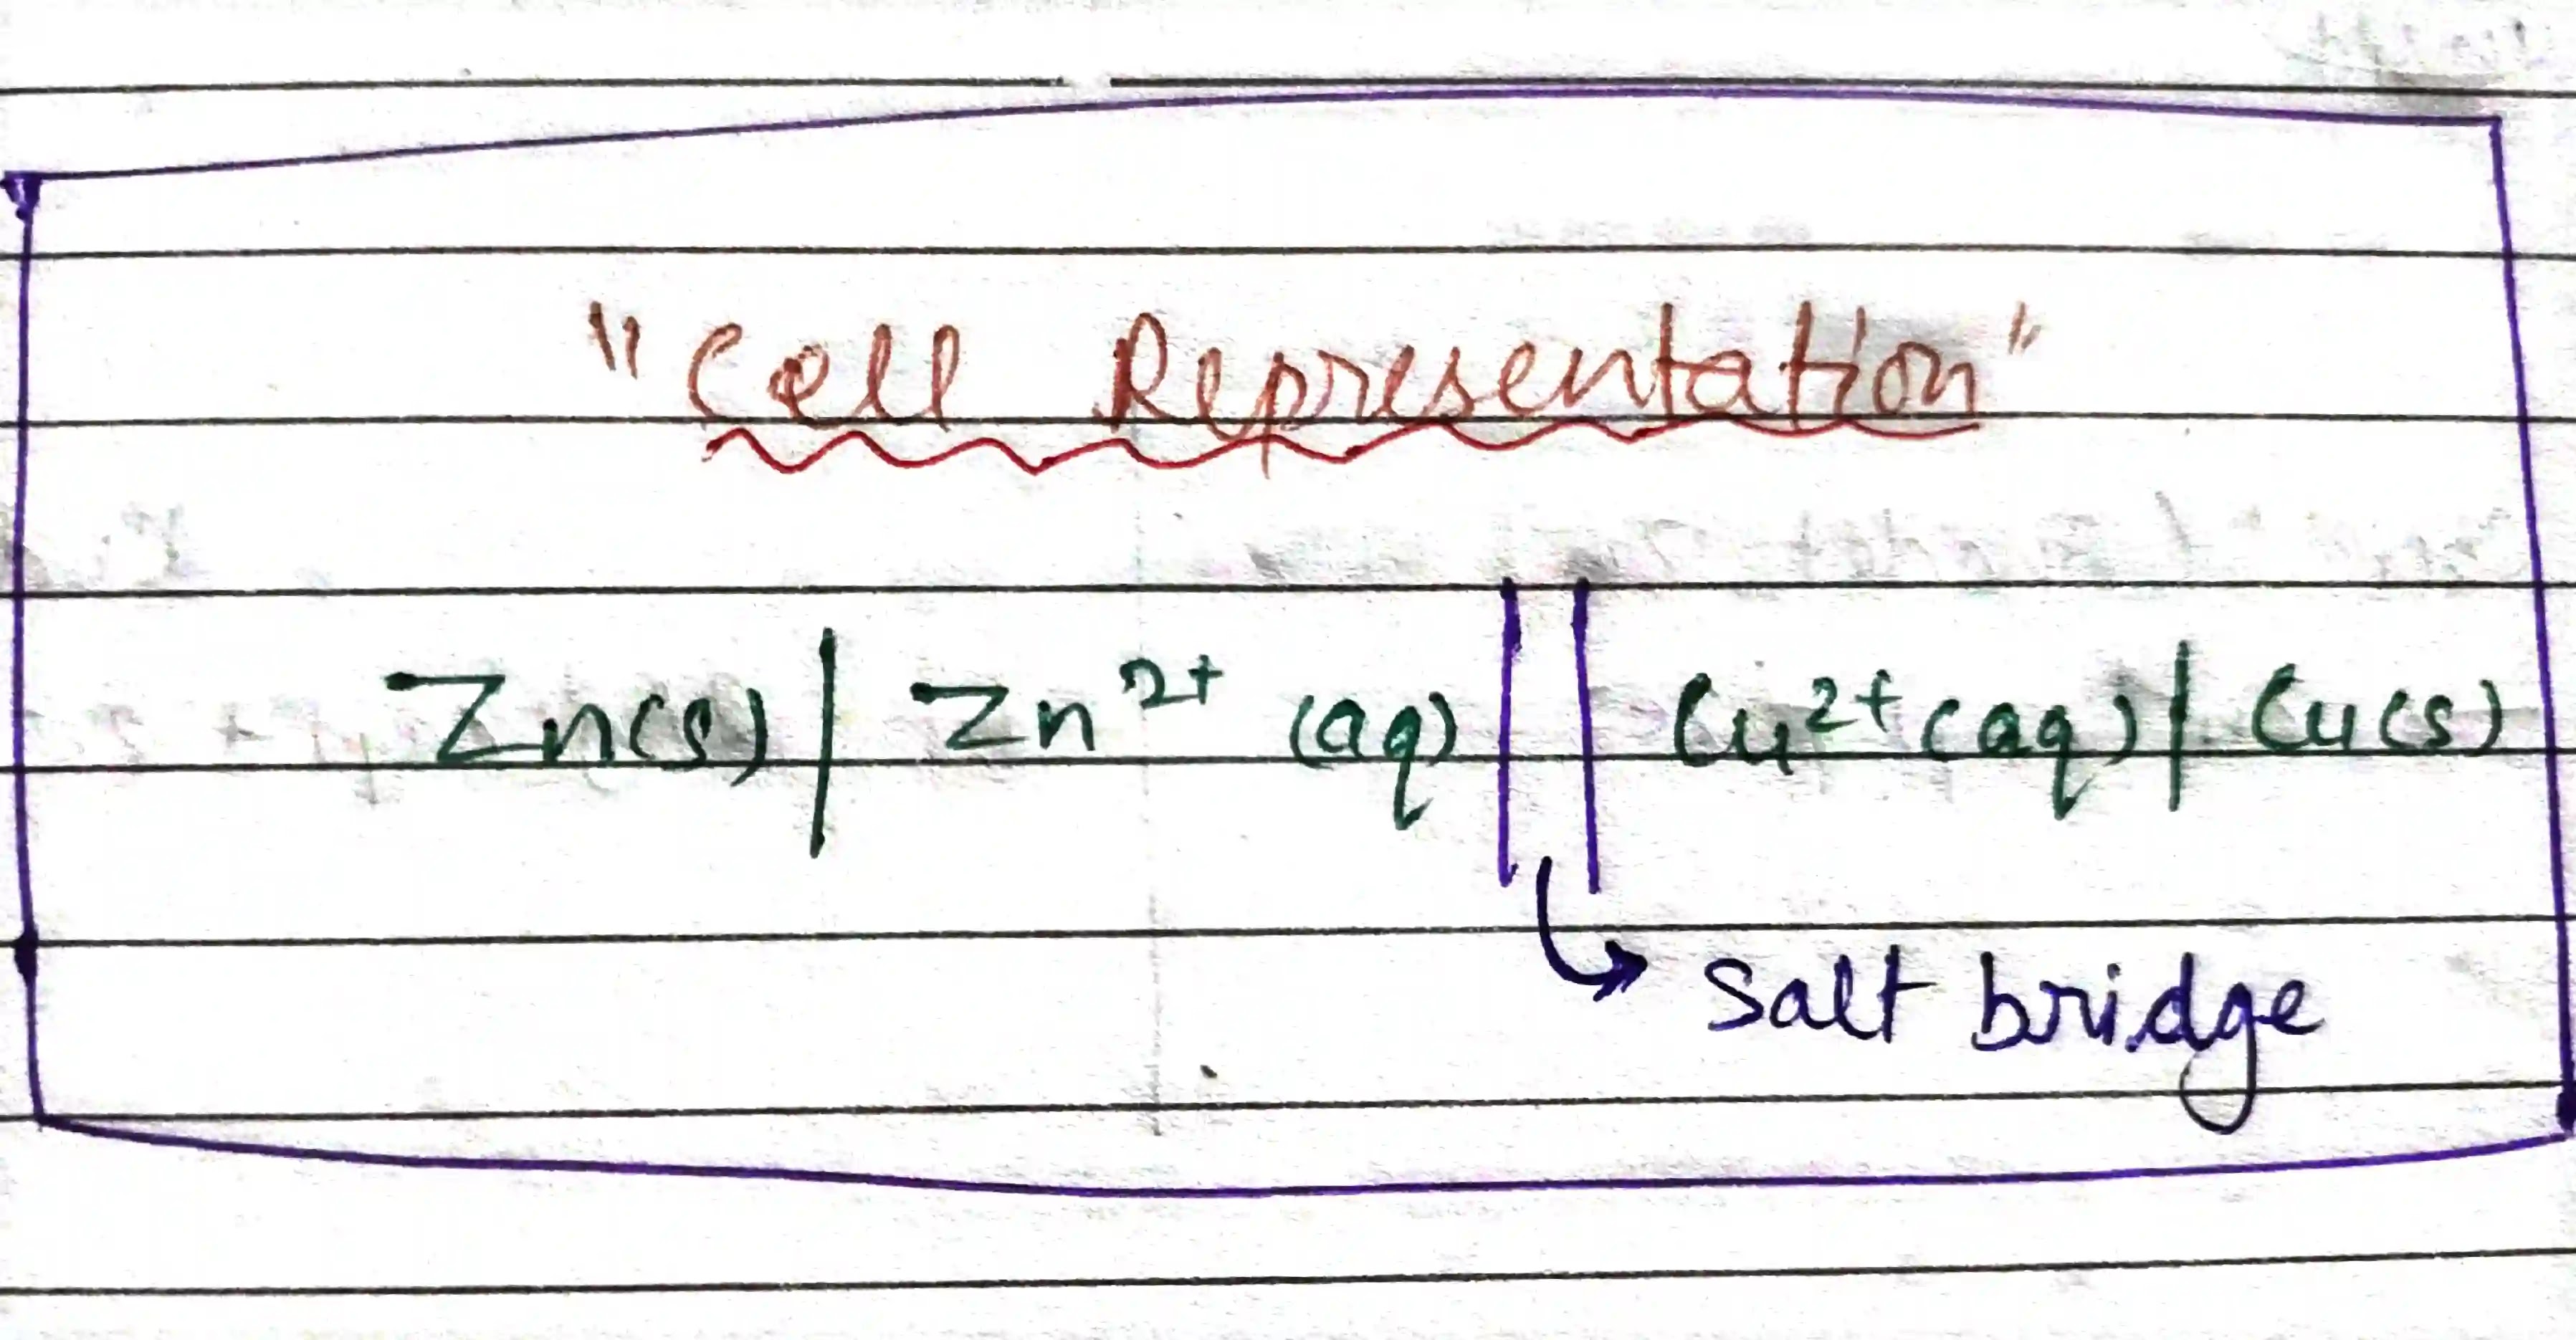 "Cell Representation"
Zn(s) | Zn²⁺ (aq) || Cu²⁺(aq) | Cu(s)
↳ Salt bridge